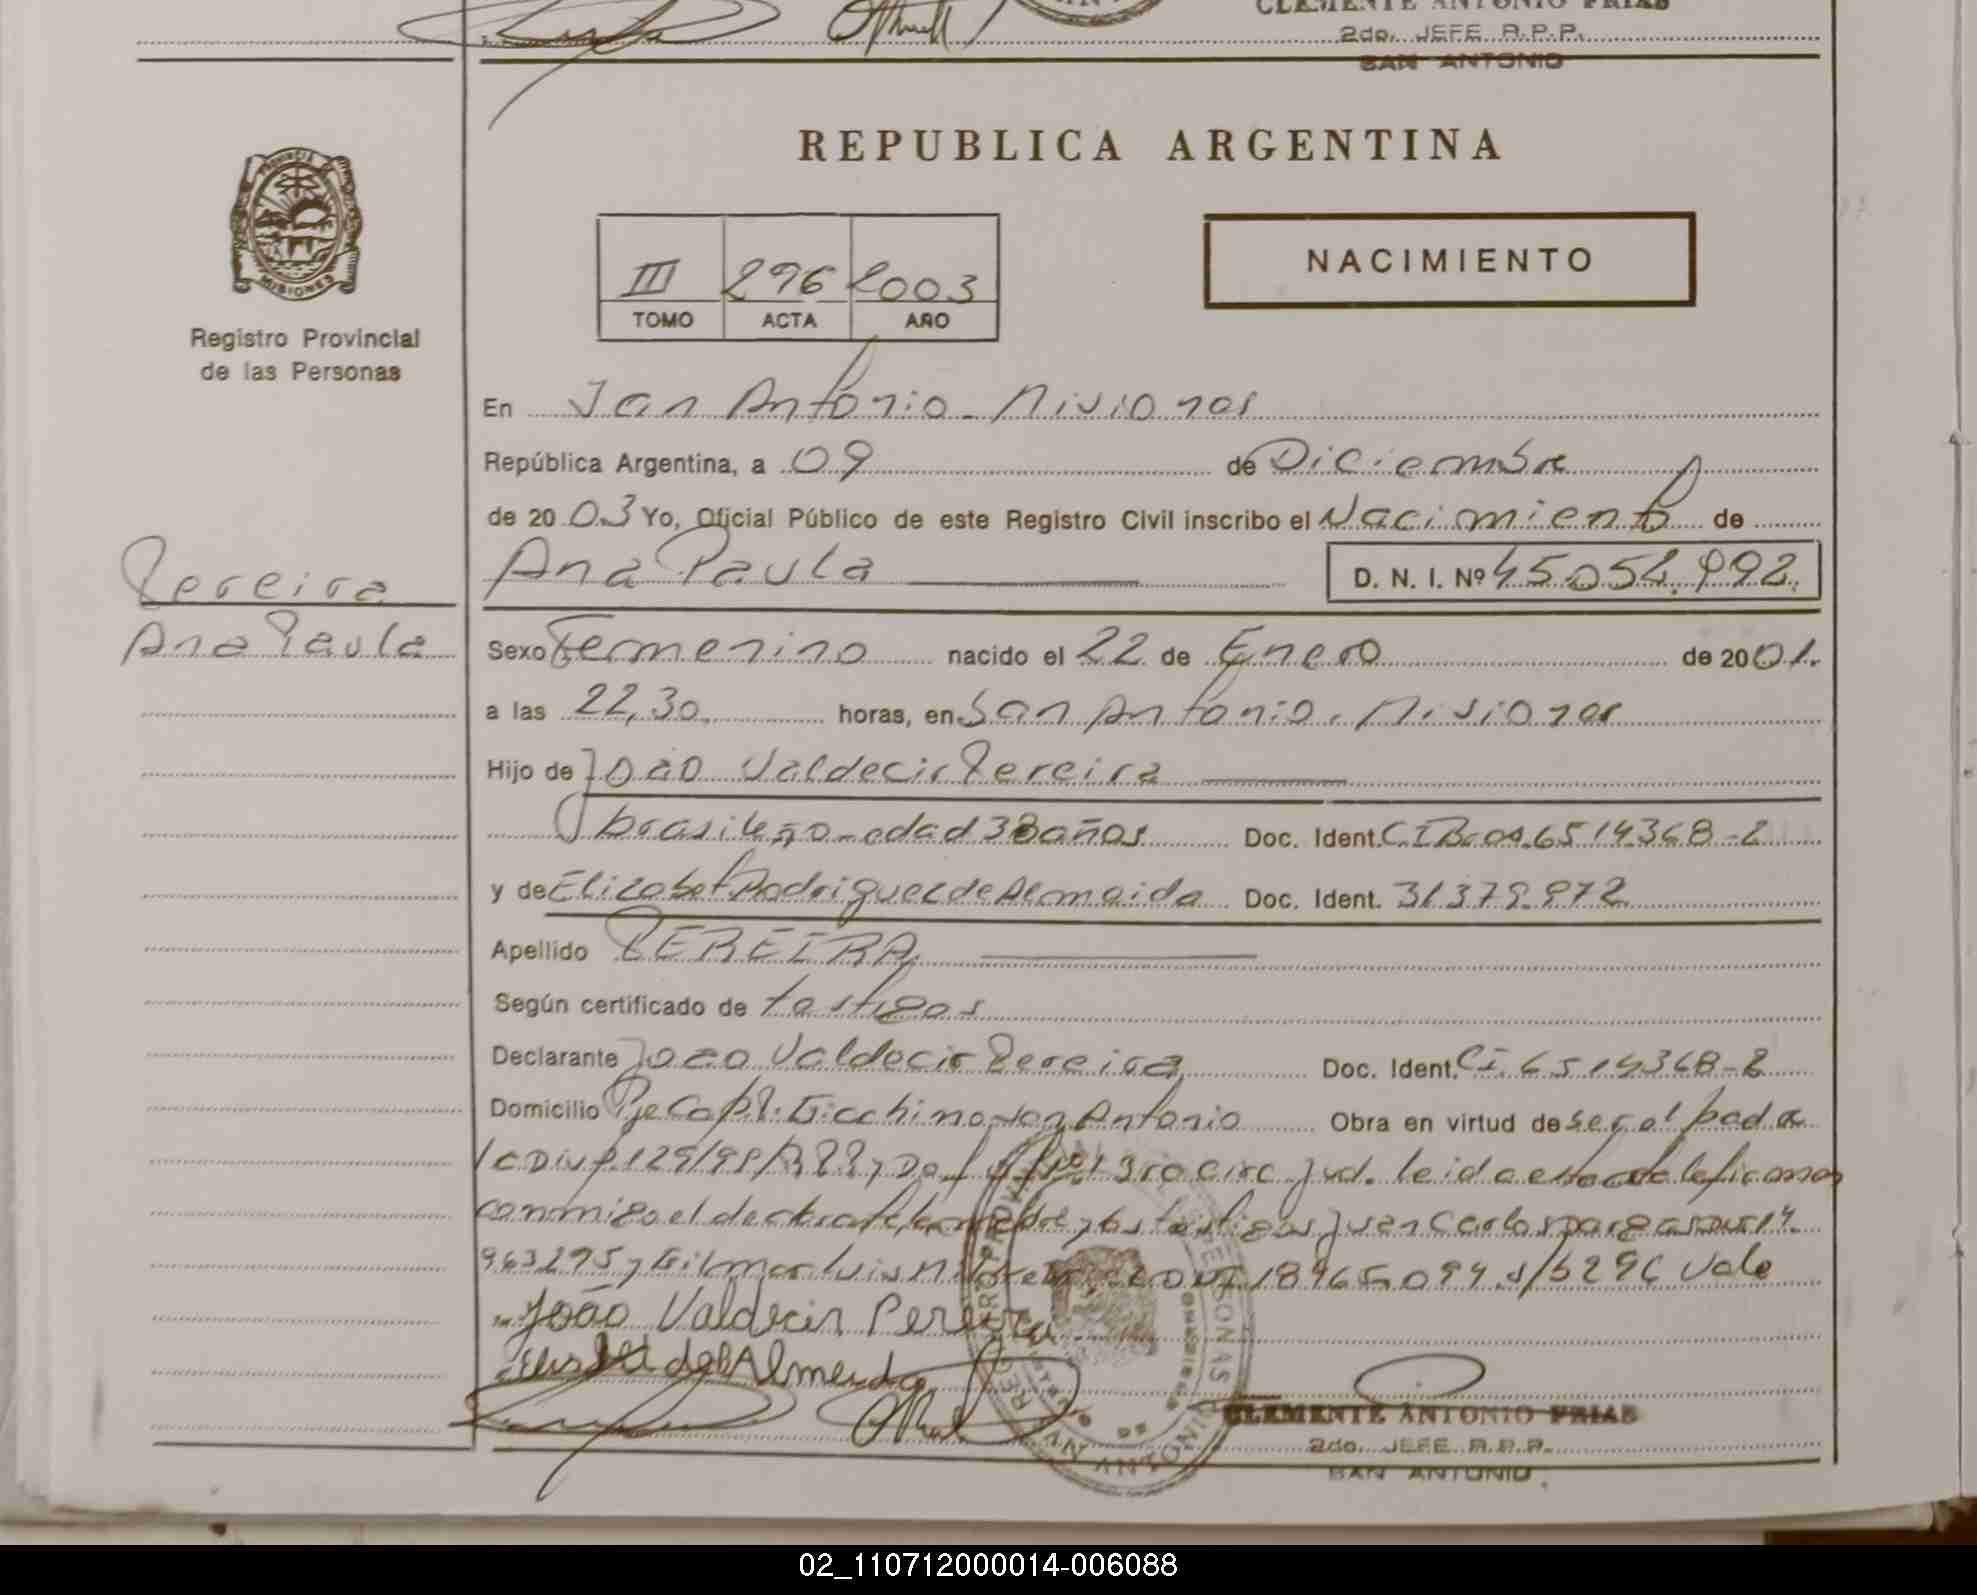 CLEMENTE ANTONIO FRIAS
2do. JEFE R.P.P.
SAN ANTONIO
REPUBLICA ARGENTINA
PROVINCIA DE MISIONES
Registro Provincial
de las Personas
III 296 2003
TOMO ACTA AÑO
NACIMIENTO
En San Antonio - Misiones
República Argentina, a 09 de Diciembre
de 2003 Yo, Oficial Público de este Registro Civil inscribo el Nacimiento de
Ana Paula D. N. I. Nº 45.052.992
Pereira
Ana Paula
Sexo Femenino nacido el 22 de Enero de 2001.
a las 22,30 horas, en San Antonio. Misiones
Hijo de Joao Valdecir Pereira
brasileño - edad 38 años Doc. Ident. C.I.Br. 6514368-2
y de Elizabet Rodriguez de Almeida Doc. Ident. 31.379.972
Apellido PEREIRA
Según certificado de testigos
Declarante Joao Valdecir Pereira Doc. Ident. CI. 6514368-2
Domicilio Pje Cap. Gicchino San Antonio Obra en virtud de ser el padre
3ra circ. jud. leida esta acta la firman
conmigo el declarante, la madre y los testigos Juan Carlos 14.
963295 y Gilmar Luis DNI 18965094 s/b 296 Vale
João Valdecir Pereira
de Almeida
CLEMENTE ANTONIO FRIAS
2do. JEFE R.P.P.
SAN ANTONIO
02_110712000014-006088